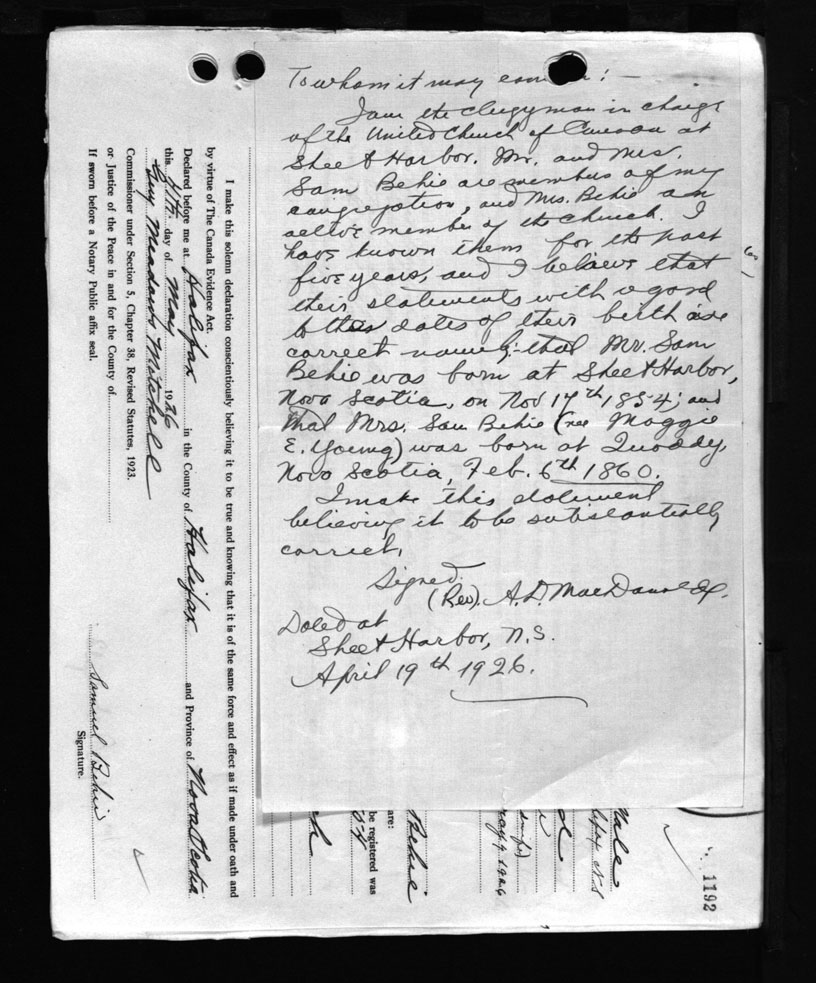 To whom it may concern: —
I am the clergyman in charge
of the United Church of Canada at
Sheet Harbor. Mr. and Mrs.
Sam Behie are members of my
congregation, and Mrs. Behie an
active member of the church. I
have known them for the past
five years, and I believe that
their statements with regard
to the dates of their birth are
correct namely: that Mr. Sam
Behie was born at Sheet Harbor,
Nova Scotia, on Nov 17th 1854; and
that Mrs. Sam Behie (nee Maggie
E. Young) was born at Quoddy,
Nova Scotia, Feb. 6th 1860.
I make this statement
believing it to be substantially
correct.
Signed.
(Rev). A. D. MacDonald.
Dated at
Sheet Harbor, N.S.
April 19th 1926.
I make this solemn declaration conscientiously believing it to be true and knowing that it is of the same force and effect as if made under oath and
by virtue of The Canada Evidence Act.
Declared before me at Halifax in the County of Halifax and Province of Nova Scotia
this 4th day of May 1926
Guy Meadows Mitchell
Commissioner under Section 5, Chapter 38, Revised Statutes, 1923.
or Justice of the Peace in and for the County of
If sworn before a Notary Public affix seal.
Samuel Behie
Signature.
Male
N.S
1926
are:
Behie
be registered was
54
1192